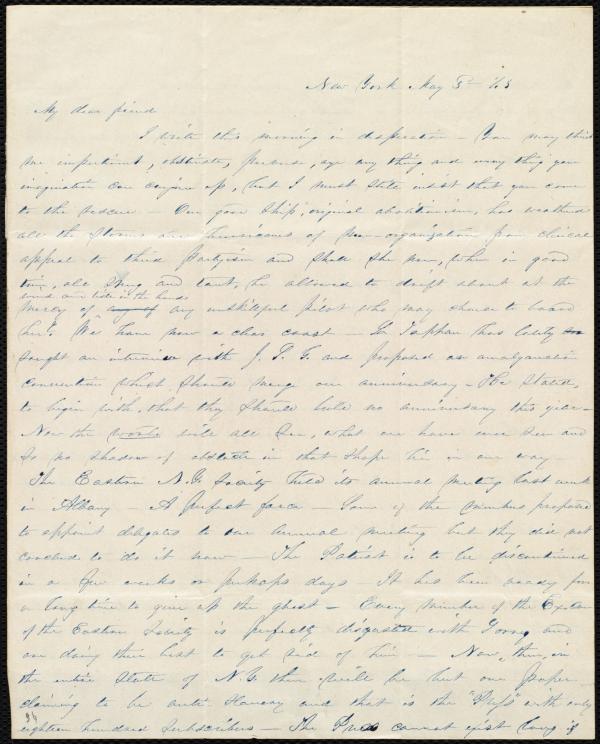 New York May 5th
My dear friend
I write this morning in desperation – You may think
me impertinent, obstinate, any thing and every thing your
imagination can conjure up, but I must still insist that you come
to the rescue – Our good ship, original abolitionism, has weathered
all the storms and hurricanes of new-organization from clerical
appeal to third partyism and shall she now, when in good
trim, all snug and taut, be allowed to drift about at the
wind and tide in the hands
mercy of any unskilful pilot who may choose to board
her? We have now a clear coast – L. Tappan has lately
sought an interview with J. S. G. and proposed an amalgamation
convention which should merge our anniversary – He stated,
to begin with, that they should hold no anniversary this year –
Now the world will all see, what we have ever seen and
so no shadow of obstacle in that shape lies in our way –
The Eastern N.Y. Society held its annual meeting last week
in Albany – A perfect farce – Some of the members proposed
to appoint delegates to our annual meeting but they did not
conclude to do it now – The Patriot is to be discontinued
in a few weeks or perhaps days – It has been ready for
a long time to give up the ghost – Every member of the
of the Eastern Society is perfectly disgusted with Torrey and
are doing their best to get rid of him – Now, then, in
the entire State of N.Y. there will be but one paper
claiming to be anti-slavery and that is the "Press" with only
eighteen hundred subscribers – The Press cannot exist long if